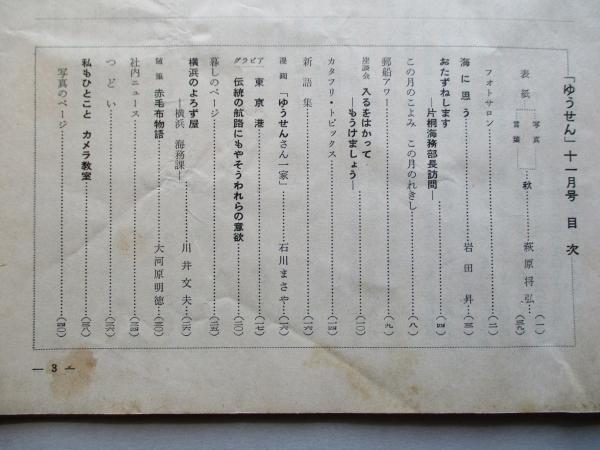 「ゆうせん」十一月号 目次
表紙 写真 言葉 …秋… 萩原将弘…(一)(三九)
フォトサロン…(二)
海に思う… 岩田 昇…(三)
おたずねします…(四)
―片桐海務部長訪問―
この月のこよみ この月のれきし…(八)
郵船アワー…(九)
座談会 入るをはかって…(一〇)
―もうけましょう―
カタフリ・トピックス…(一四)
新語集…
漫画 「ゆうせんさん一家」… 石川まさや…(一六)
グラビア 東京港…(一七)
伝統の航路にもやそうわれらの意欲…(二〇)
暮しのページ…(二五)
横浜のよろず屋… 川井文夫…
―横浜 海務課―
随筆 赤毛布物語… 大河原明徳…(三〇)
社内ニュース…(三四)
つどい…
私もひとこと カメラ教室…(三八)
写真のページ…(四〇)
― 3 ―